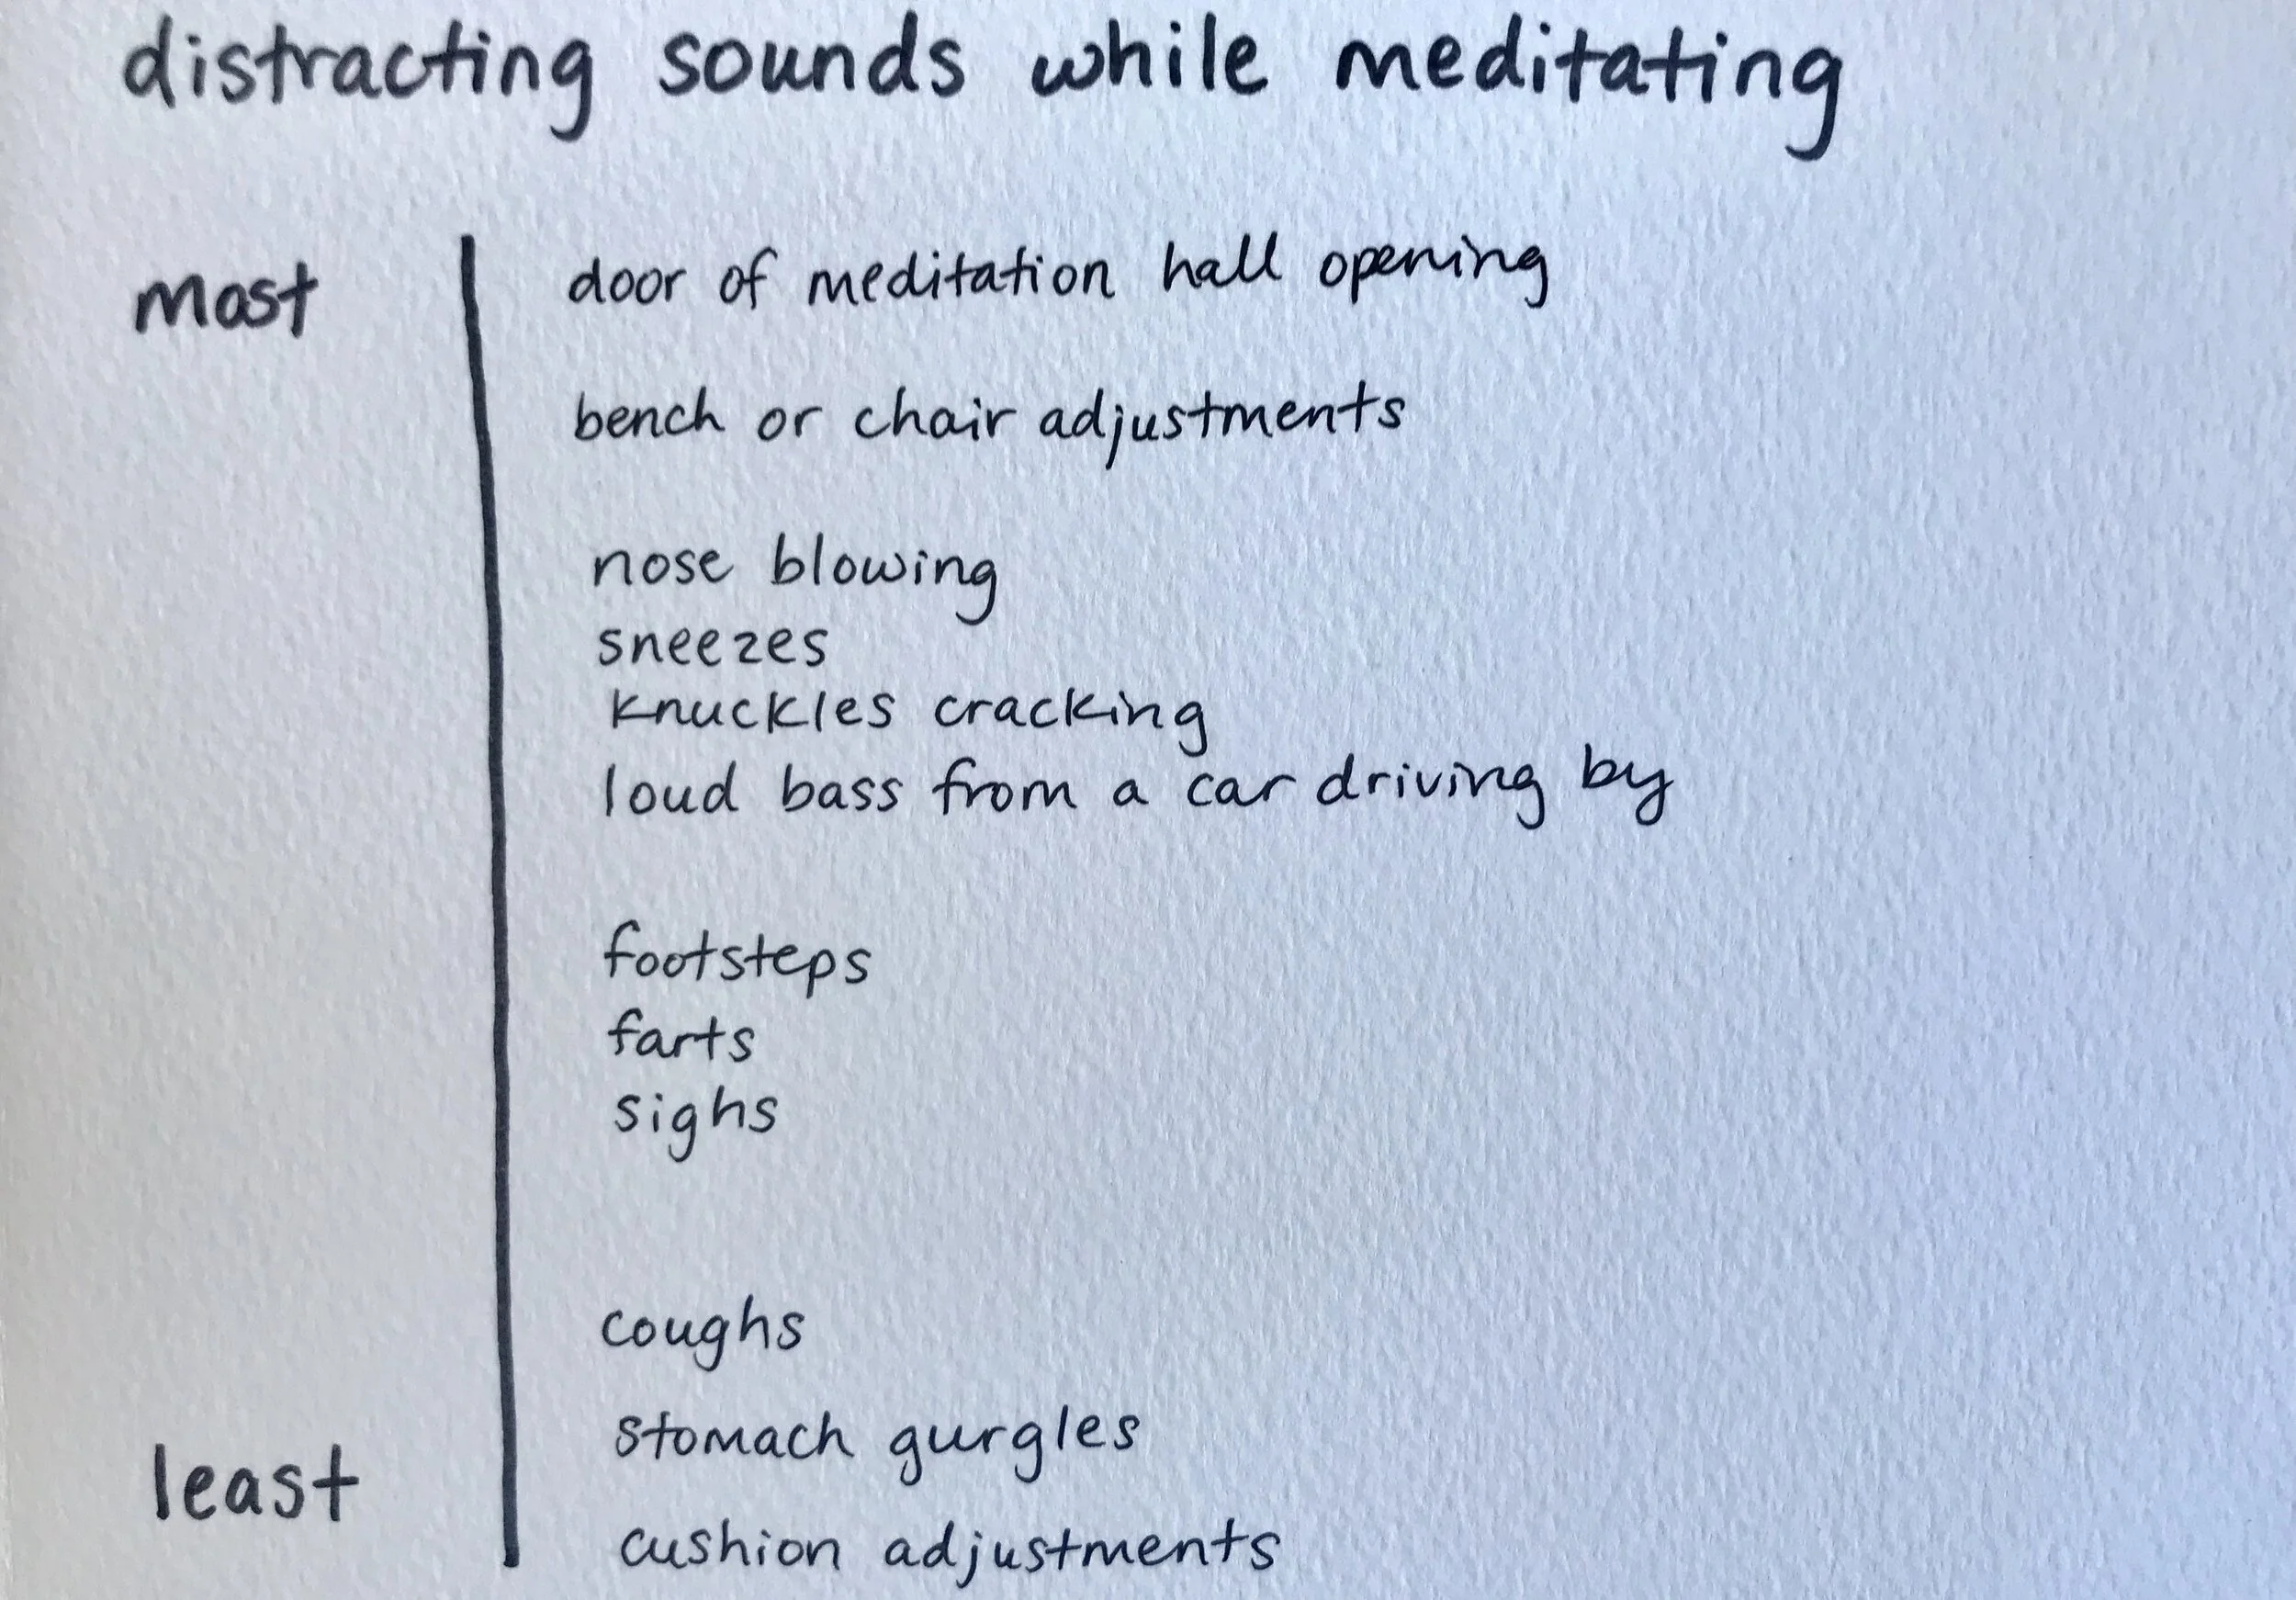 distracting sounds while meditating
most
door of meditation hall opening
bench or chair adjustments
nose blowing
sneezes
knuckles cracking
loud bass from a car driving by
footsteps
farts
sighs
coughs
stomach gurgles
least
cushion adjustments